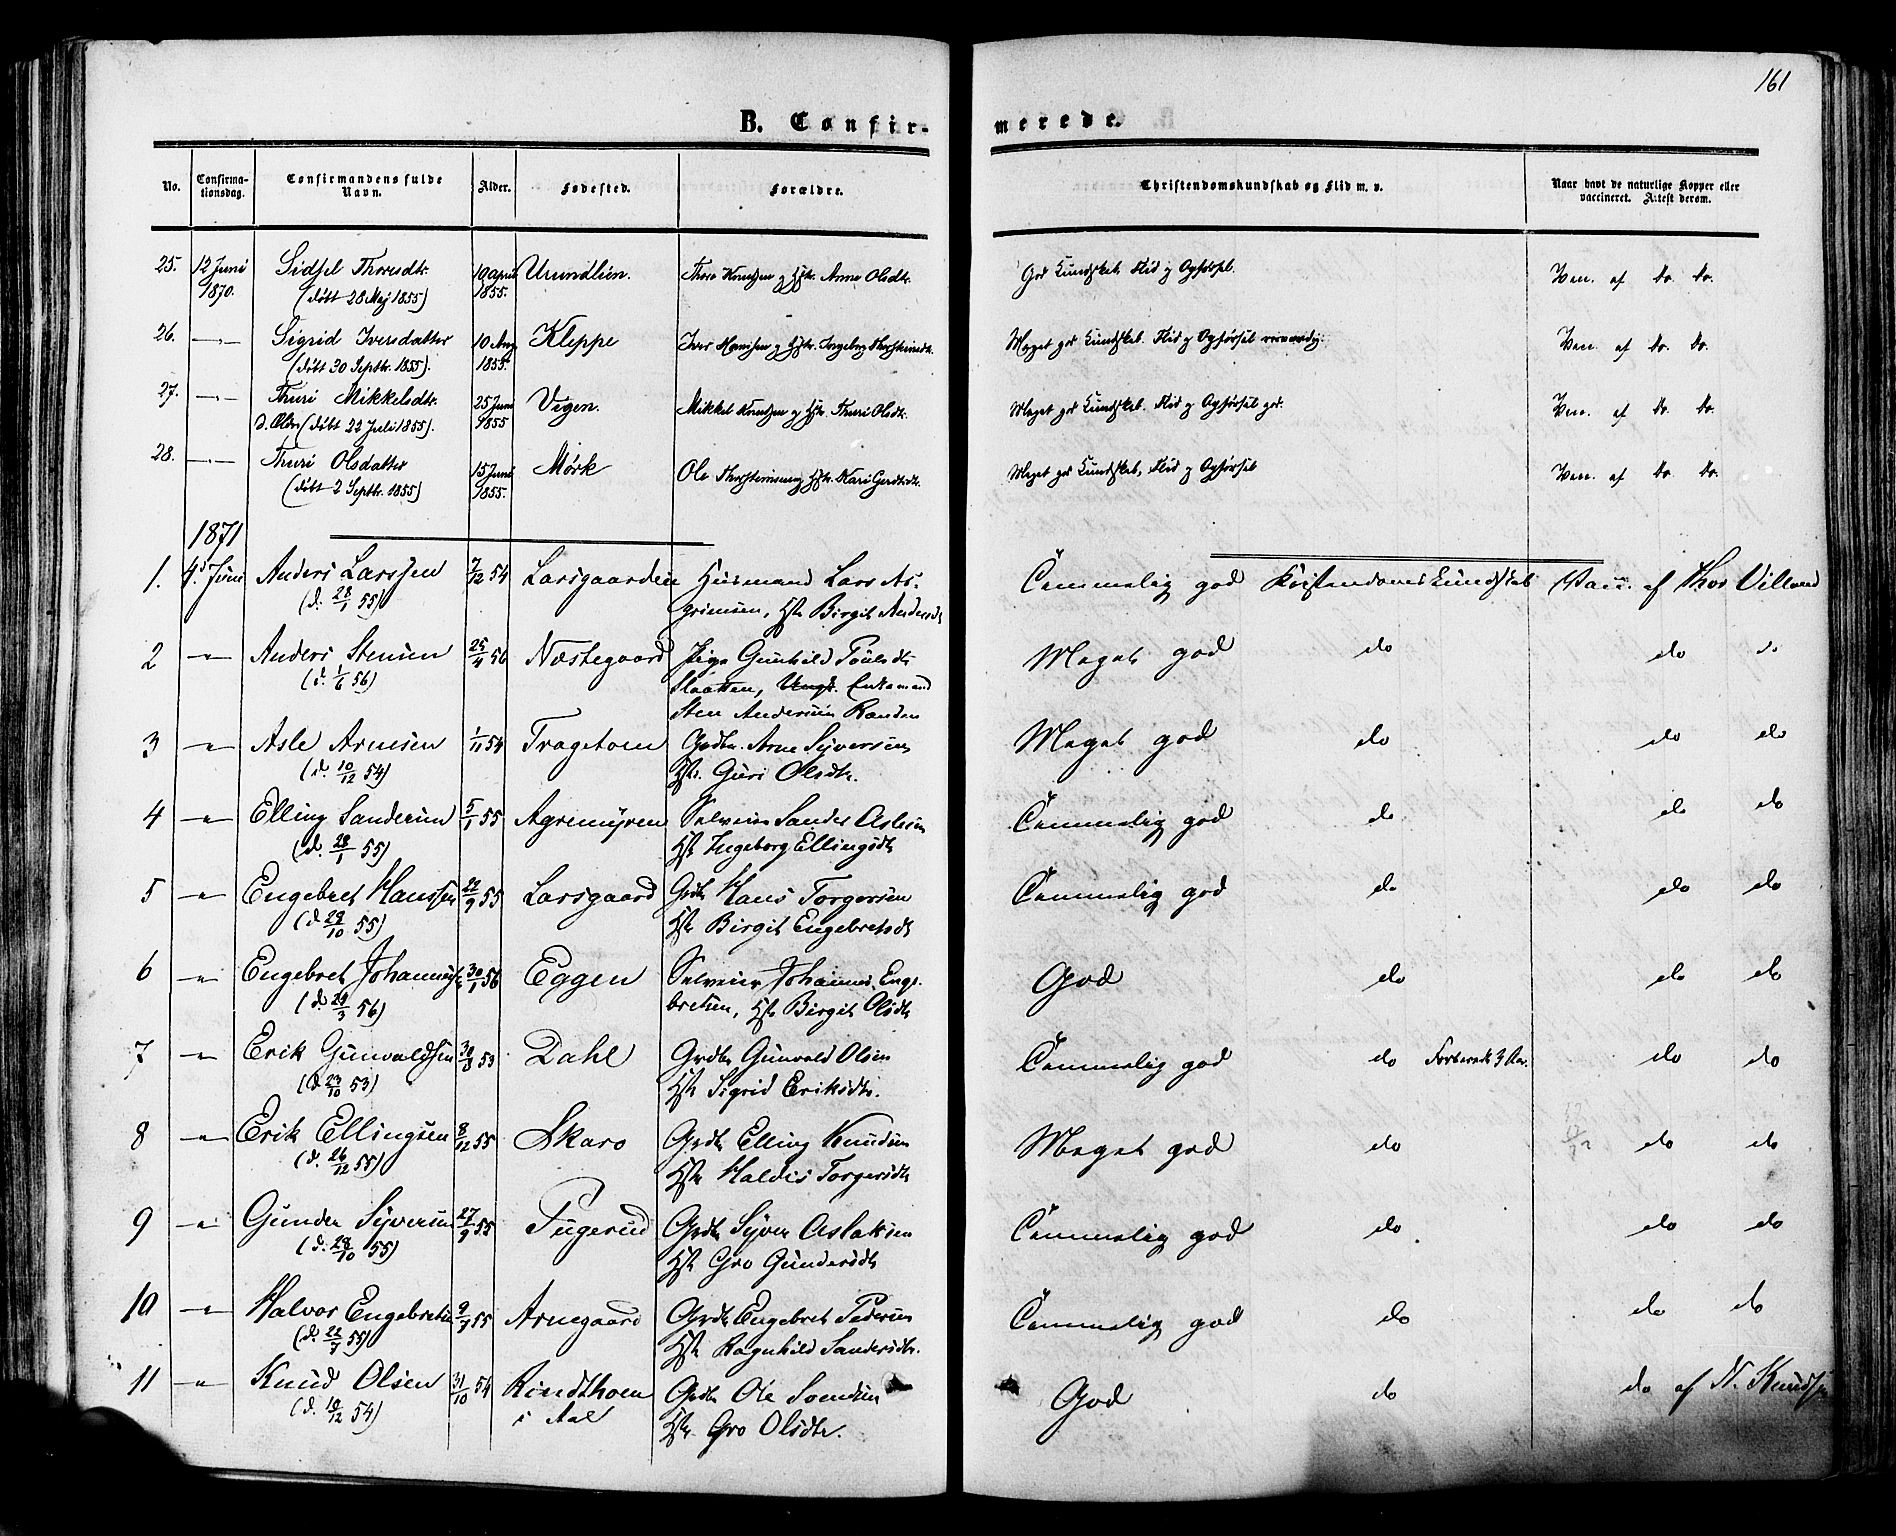 161
B. Confir-merede.
No. Confirma-tionsdag. Confirmandens fulde Navn. Alder. Fødested. Forældre. Christendomskundskab og Flid m. v. Naar havt de naturlige Kopper eller vaccineret. Attest derom.
25. 12 Juni Sidsel Thoresdtr. 19 April Urundlien. Thore Knudsen og Hstr. Anne Olsdtr. God Kundskab. Flid og Opførsel. Vacc. af do. do.
1870. (døbt 28 Maj 1855) 1855.
26. —"— Sigrid Iversdatter 10 Aug Kleppe Iver Hansen og Hstr. Ingebor Thorsteinsdtr. Meget god Kundskab. Flid og Opførsel Vacc. af do. do.
(døbt 30 Septbr. 1855). 1855.
27. —"— Thuri Mikkelsdtr. 25 Juni Vigen. Mikkel Knudsen og Hstr. Thuri Olsdtr. Meget god Kundskab. Flid og Opførsel god. Vacc. af do. do.
d. Ældre (døbt 22 Juli 1855). 1855
28. —"— Thuri Olsdatter 15 Juni Mørk Ole Thorsteinsen og Hstr. Kari Meget god Kundskab, Flid og Opførsel Vacc. af do. do.
(døbt 2 Septbr. 1855) 1855.
1871
1. 4de Juni Anders Larssen 7/12 54 Larsgaarden Husmand Lars As- Temmelig god Kristendomskundskab Vacc. af Thor Villand
(d. 28/1 55) grimsen, Hstr Birgit Andersdt
2 —"— Anders Stensen 25/4 56 Næstegaard Pige Gunhild Poulsdt Meget god do do do
(d. 1/6 56) Slaatten, Ungk. Enkemand
Sten Andersen Randen
3 —"— Asle Arnesen 1/11 54 Tragetom Grdbr. Arne Syversen Meget god do do do
(d. 10/12 54) Hstr. Guri Olsdtr.
4 —"— Elling Sandersen 5/1 55 Agremyren Selveier Sander Aslesen Temmelig god do do do
(d. 28/1 55) Hstr Ingeborg Ellingsdt
5 —"— Engebret Hanssen 22/9 55 Larsgaard Grdbr Hans Torgersen Temmelig god do do do
(d. 29/10 55) Hstr Birgit Engebretsdt
6 —"— Engebret Johannes 30/1 56 Eggen Selveier Johannes Enge- God do do do
(d. 24/3 56) bretsen, Hstr Birgit Olsdt
7 —"— Erik Gunvaldsen 53 Dahl Grdbr Gunvald Olsen Temmelig god do do do
(d. 23/10 53) Hstr Sigrid Eriksdtr.
8 —"— Erik Ellingsen 8/12 55 Skaro Grdbr Elling Knudsen Meget god do do do
(d. 26/12 55) Hstr Haldis Torgersdt
9 —"— Gunder Syversen 27/9 55 Tugerud Grdbr Syver Aslaksen Temmelig god do do do
(d. 28/10 55) Hstr Gro Gundersdt
10 —"— Halvor Engebretsen 55 Arnegaard Grdbr Engebret Pedersen Temmelig god do do do
(d. 22/7 55) Hstr Ragnhild Sandersdtr.
11 —"— Knud Olsen 31/10 54 Rindthoen Grdbr Ole Svendsen God do do af N. Knudsen
(d. 10/12 54) i Aal Hstr. Gro Olsdtr.